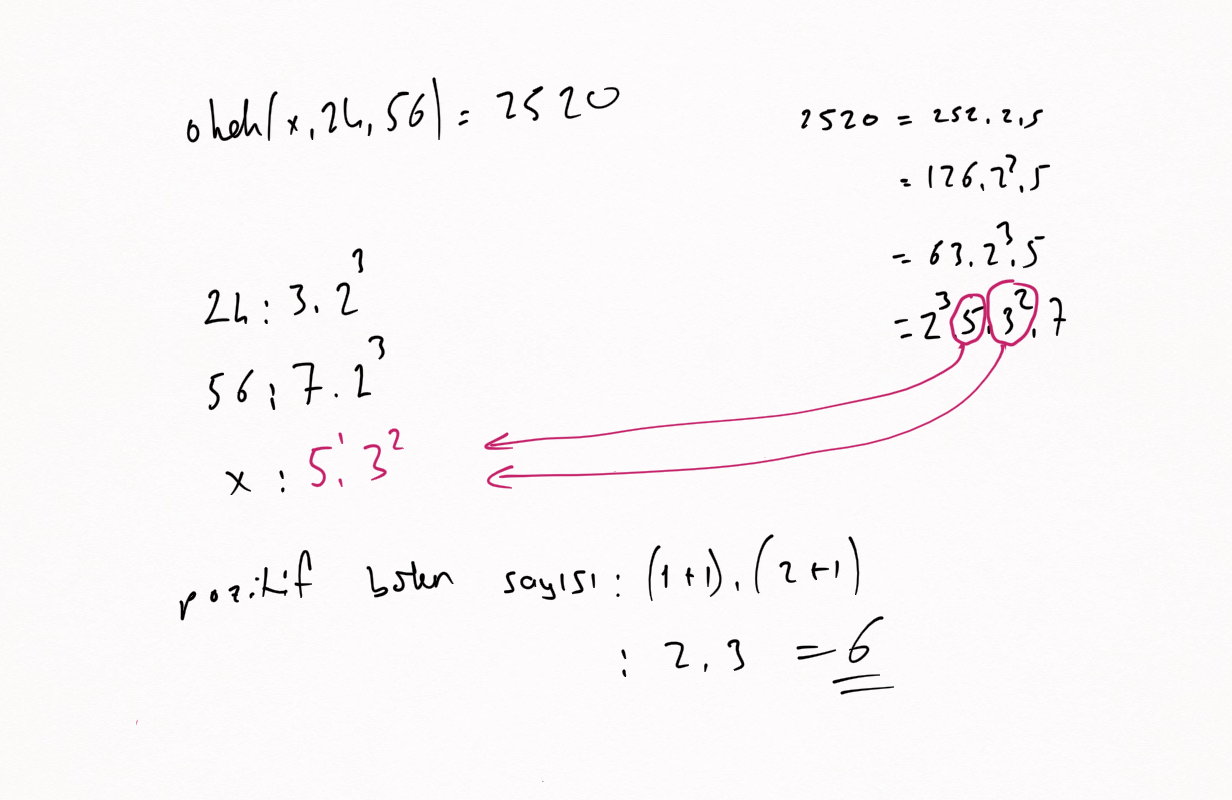 okek(x, 24, 56) = 2520
2520 = 252.2.5
= 126.2².5
= 63.2³.5
= 2³.5.3².7
24 : 3.2³
56 : 7.2³
x : 5¹.3²
pozitif bölen sayısı : (1+1).(2+1)
: 2.3 = 6